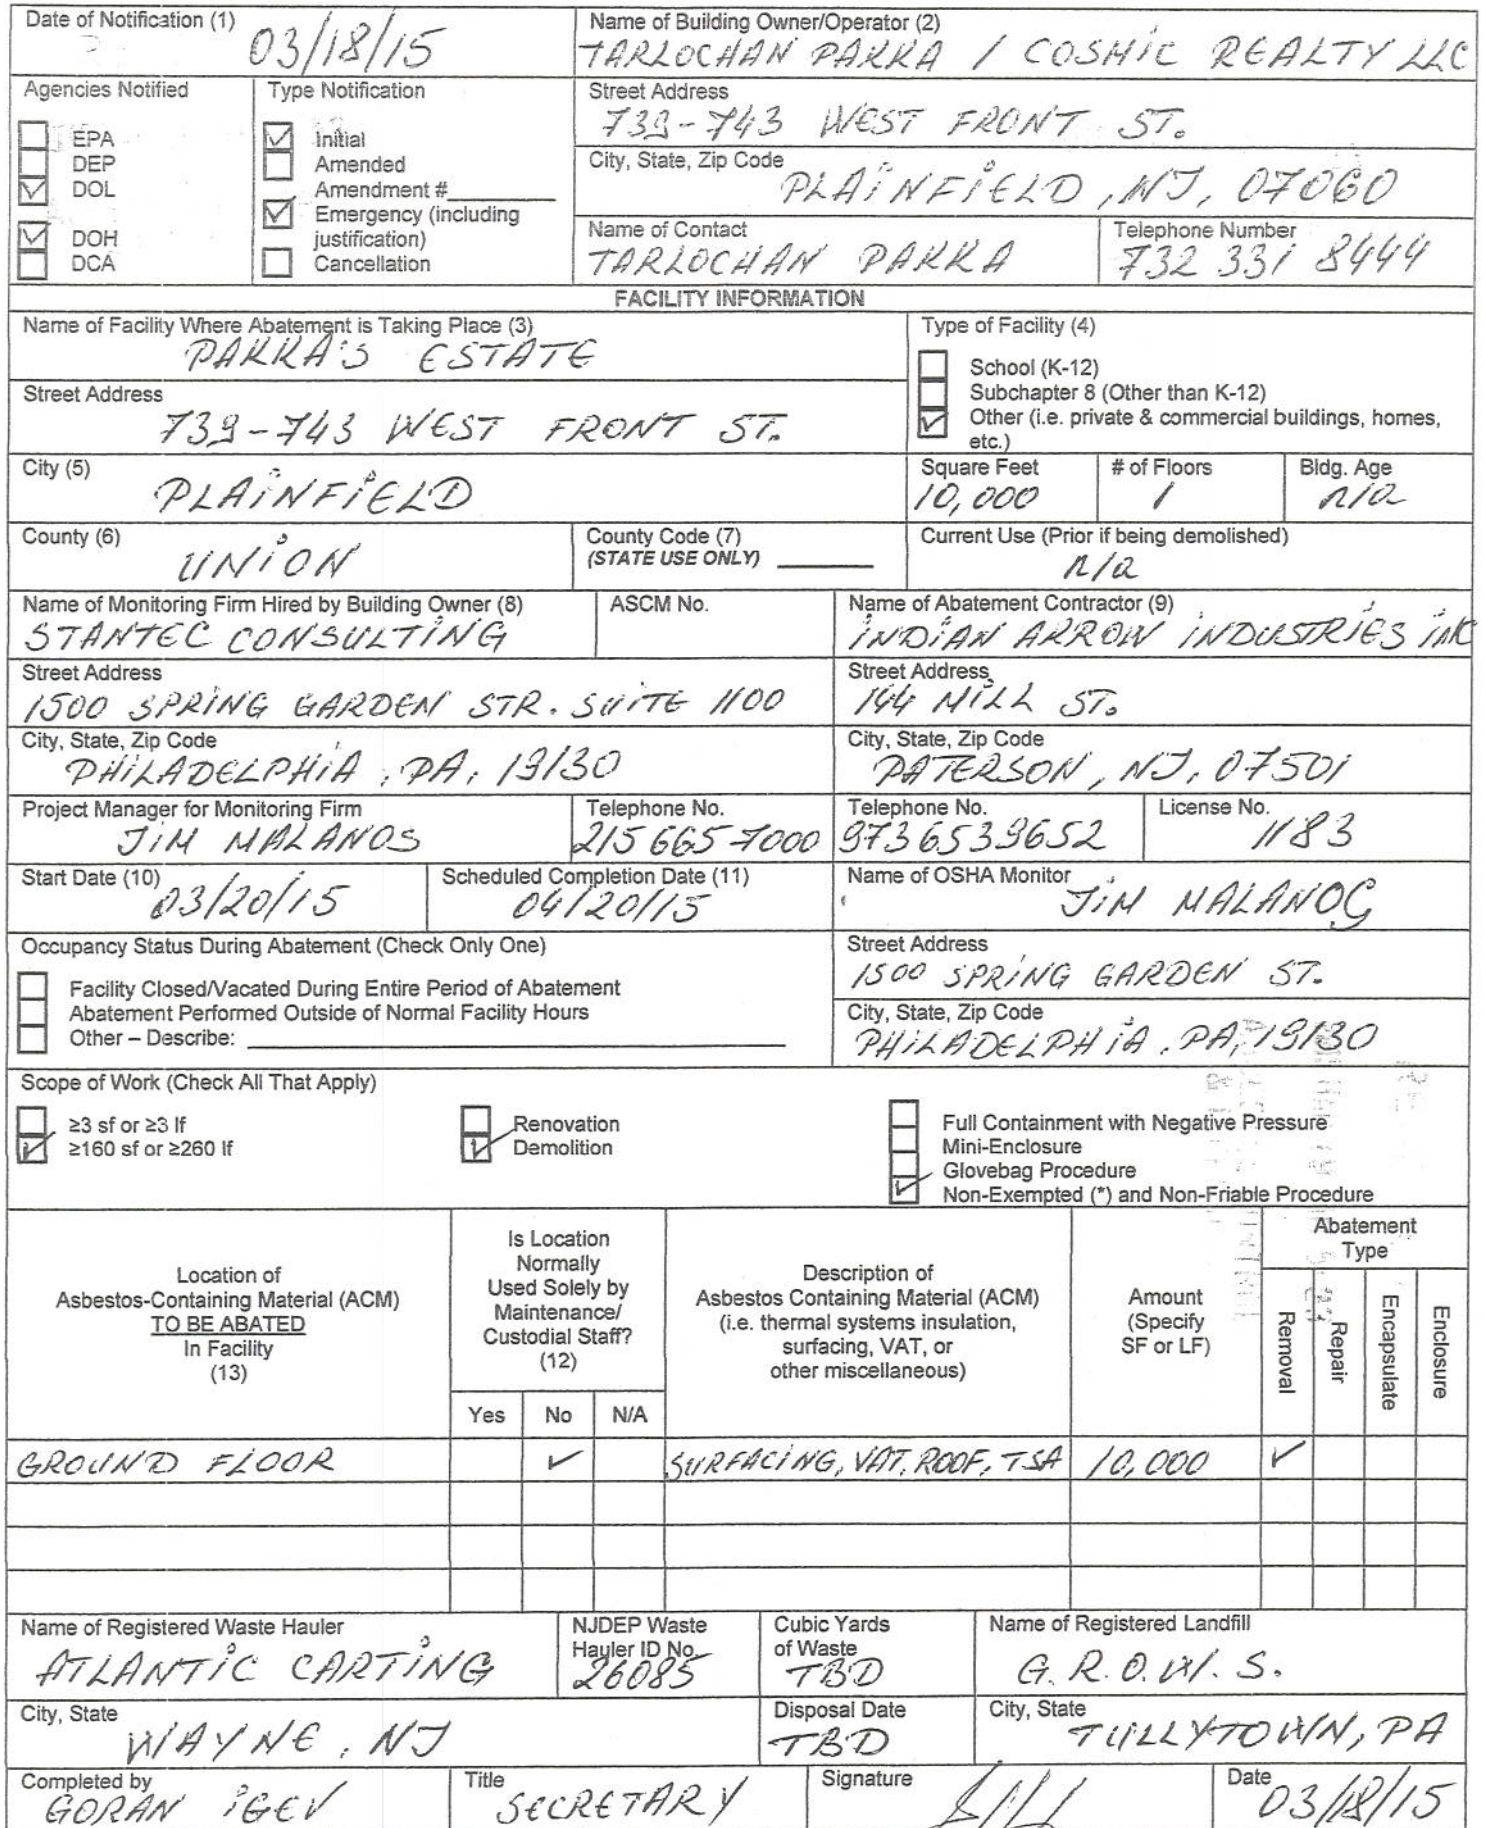 Date of Notification (1)
03/18/15
Name of Building Owner/Operator (2)
TARLOCHAN PAKKA / COSMIC REALTY LLC
Agencies Notified
EPA
DEP
DOL
DOH
DCA
Type Notification
Initial
Amended
Amendment #
Emergency (including
justification)
Cancellation
Street Address
739-743 WEST FRONT ST.
City, State, Zip Code
PLAINFIELD, NJ, 07060
Name of Contact
TARLOCHAN PAKKA
Telephone Number
732 331 8444
FACILITY INFORMATION
Name of Facility Where Abatement is Taking Place (3)
PAKKA'S ESTATE
Type of Facility (4)
School (K-12)
Subchapter 8 (Other than K-12)
Other (i.e. private & commercial buildings, homes,
etc.)
Street Address
739-743 WEST FRONT ST.
City (5)
PLAINFIELD
Square Feet
10,000
# of Floors
1
Bldg. Age
n/a
County (6)
UNION
County Code (7)
(STATE USE ONLY)
Current Use (Prior if being demolished)
n/a
Name of Monitoring Firm Hired by Building Owner (8)
STANTEC CONSULTING
ASCM No.
Name of Abatement Contractor (9)
INDIAN ARROW INDUSTRIES INC
Street Address
1500 SPRING GARDEN STR. SUITE 1100
Street Address
144 MILL ST.
City, State, Zip Code
PHILADELPHIA, PA, 19130
City, State, Zip Code
PATERSON, NJ, 07501
Project Manager for Monitoring Firm
JIM MALANOS
Telephone No.
215 665 7000
Telephone No.
9736539652
License No.
1183
Start Date (10)
03/20/15
Scheduled Completion Date (11)
04/20/15
Name of OSHA Monitor
JIM MALANOS
Occupancy Status During Abatement (Check Only One)
Facility Closed/Vacated During Entire Period of Abatement
Abatement Performed Outside of Normal Facility Hours
Other – Describe:
Street Address
1500 SPRING GARDEN ST.
City, State, Zip Code
PHILADELPHIA, PA, 19130
Scope of Work (Check All That Apply)
≥3 sf or ≥3 lf
≥160 sf or ≥260 lf
Renovation
Demolition
Full Containment with Negative Pressure
Mini-Enclosure
Glovebag Procedure
Non-Exempted (*) and Non-Friable Procedure
Location of
Asbestos-Containing Material (ACM)
TO BE ABATED
In Facility
(13)
Is Location
Normally
Used Solely by
Maintenance/
Custodial Staff?
(12)
Yes No N/A
Description of
Asbestos Containing Material (ACM)
(i.e. thermal systems insulation,
surfacing, VAT, or
other miscellaneous)
Amount
(Specify
SF or LF)
Abatement
Type
Removal
Repair
Encapsulate
Enclosure
GROUND FLOOR
SURFACING, VAT, ROOF, TSA
10,000
Name of Registered Waste Hauler
ATLANTIC CARTING
NJDEP Waste
Hauler ID No.
26085
Cubic Yards
of Waste
TBD
Name of Registered Landfill
G.R.O.W.S.
City, State
WAYNE, NJ
Disposal Date
TBD
City, State
TULLYTOWN, PA
Completed by
GORAN IGEV
Title
SECRETARY
Signature
Date
03/18/15